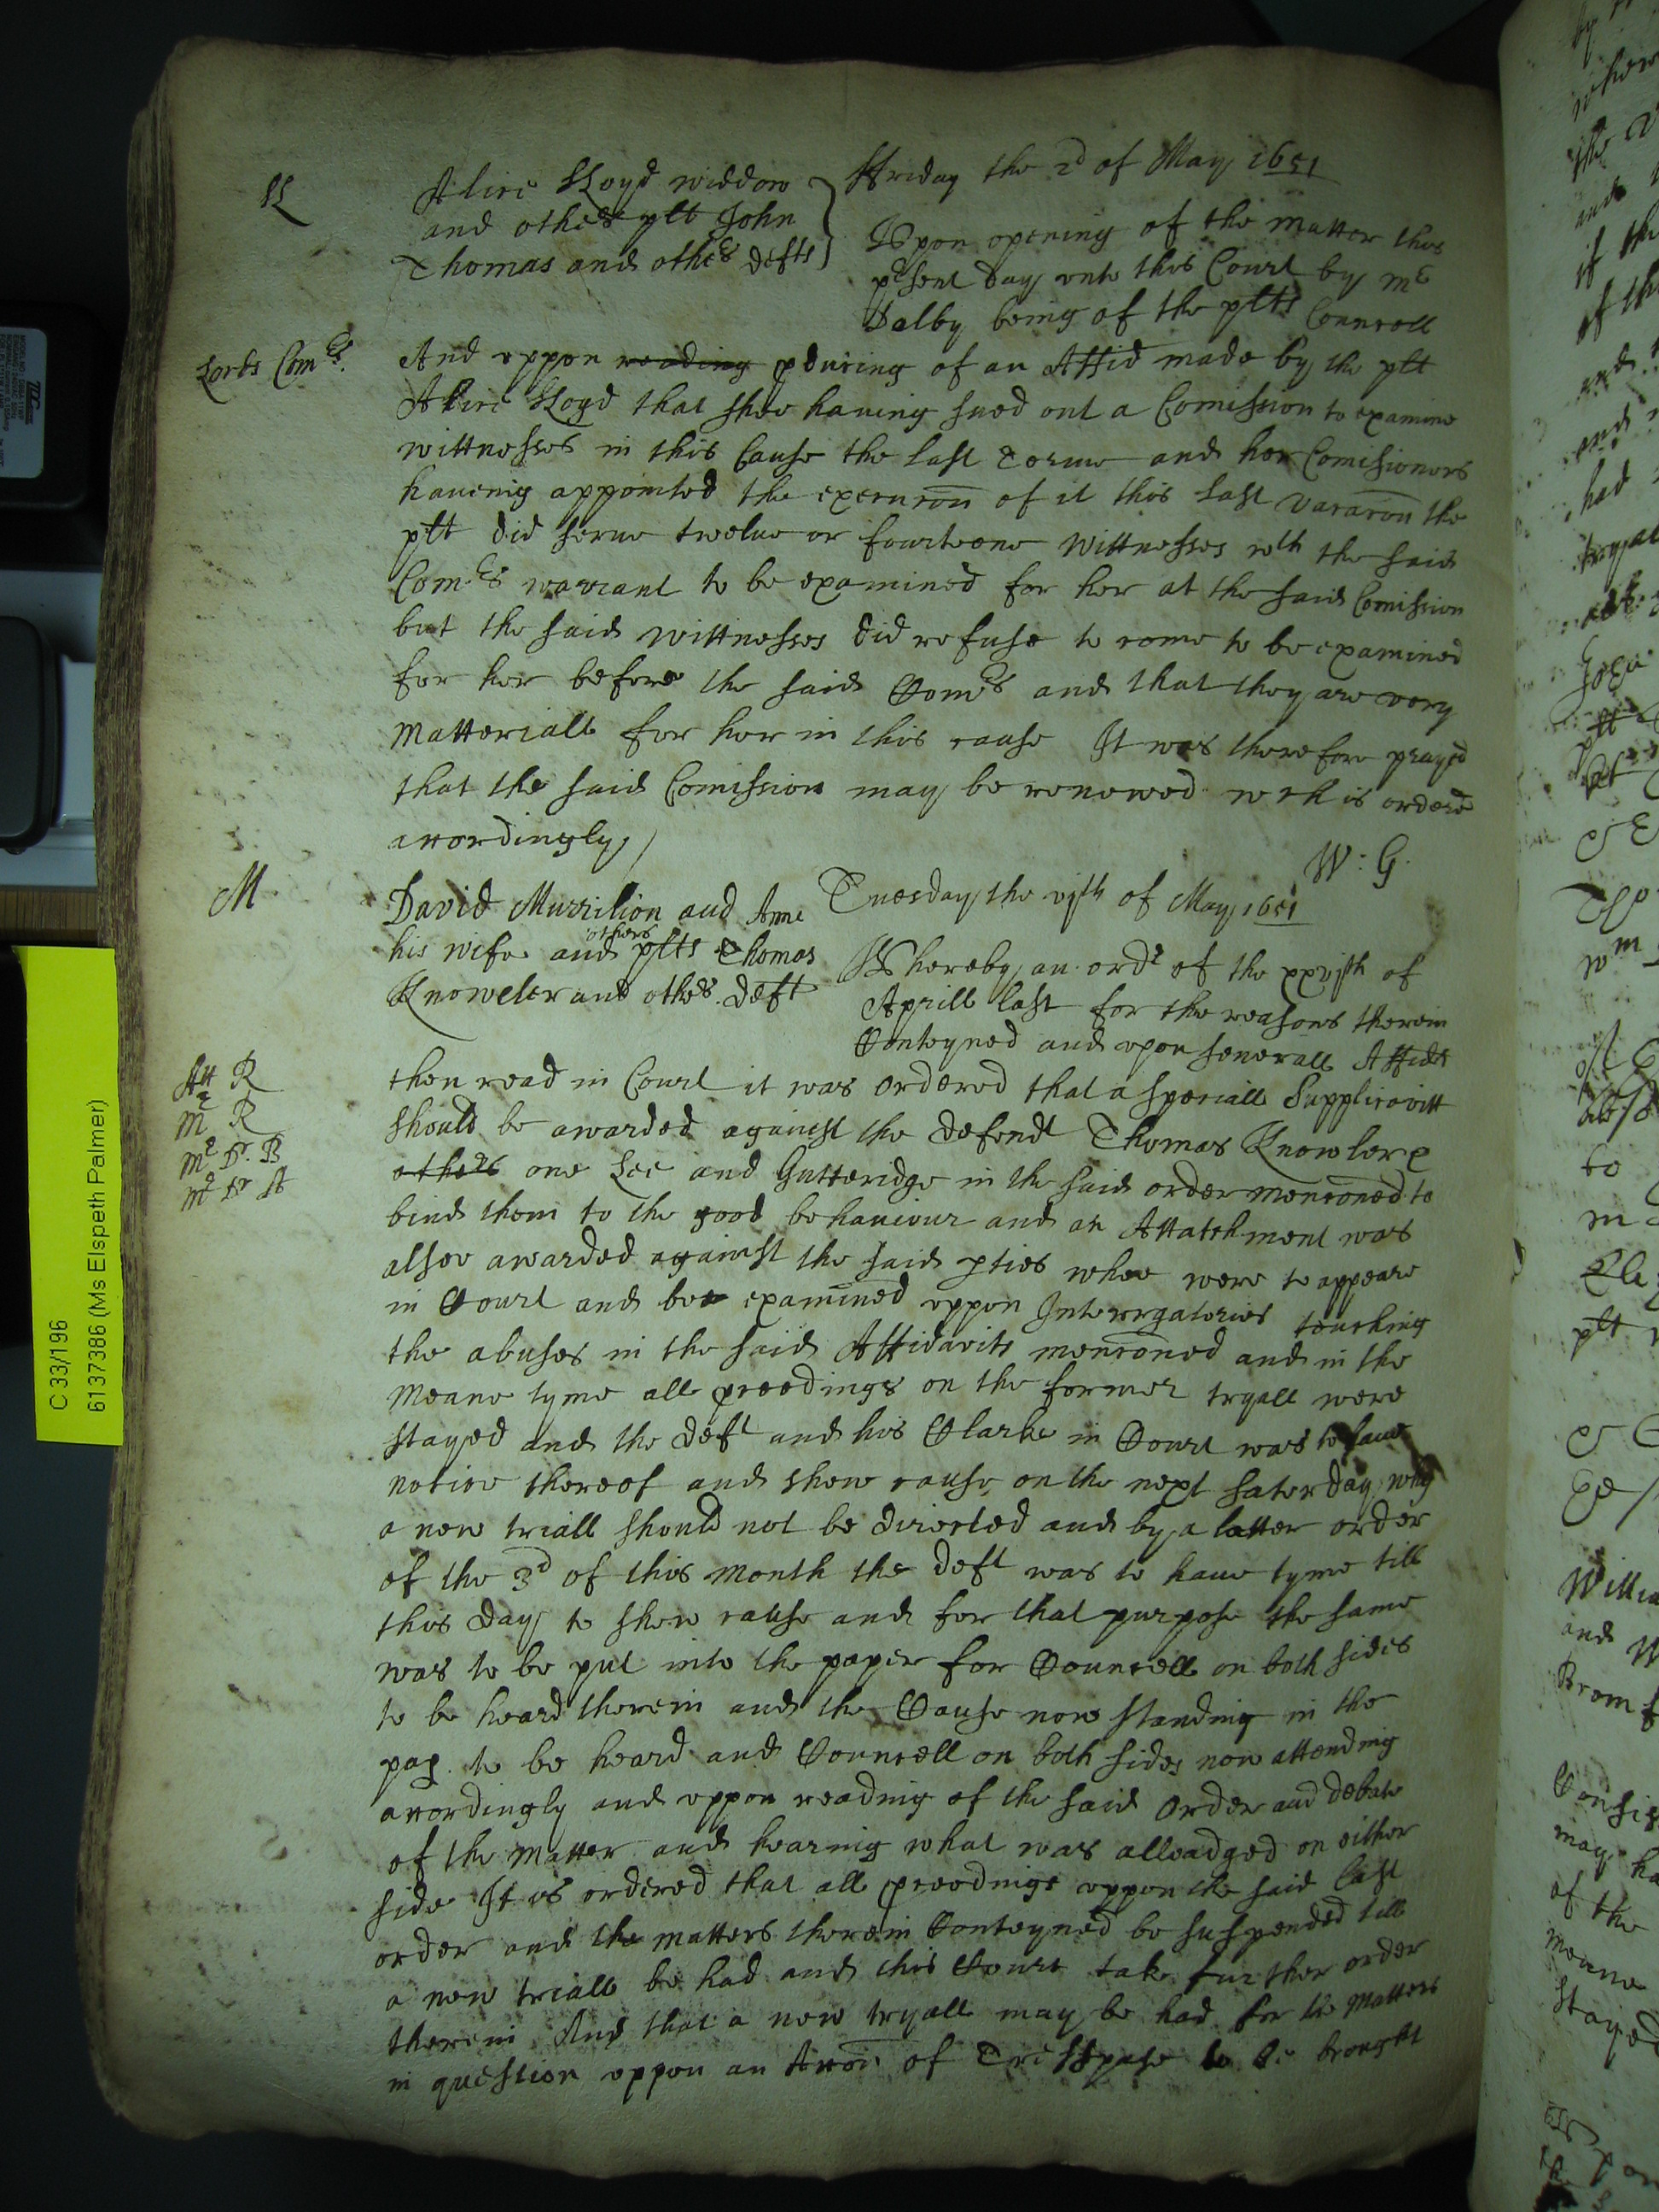 Ll
Alice Lloyd widdow
and othes plt John
Thomas and othes defts
Friday the 2d of May 1651
Vpon opening of the matter this
psent day vnto this Court by mr
Dalby being of the plts Councell
Lords Comrs.
And vppon reading pducing of an Affid made by the plt
Alice Lloyd that shee haueing sued out a Comission to examine
wittnesses in this Cause the last Terme and her Comissioners
haueing appointed the execucon of it this last vacacon the
plt did serue twelue or fourteene wittnesses wth the said
Comrs warrant to be examined for her at the said Comission
but the said wittnesses did refuse to come to be examined
for her before the said Comrs and that they are very
matteriall for her in this cause It was therefore prayed
that the said Comission may be renewed wch is ordered
accordingly
W: G.
M.
David Murrilion and Anne
his wife and others plts Thomas
Knoweler and othes. deft
Tuesday the vjth of May 1651
Whereby an ordr of the xxvjth of
Aprill last for the reasons therein
Conteyned and vpon seuerall Affidts
Att R
Mr R
Mr Dr. B
Mr Dr A
then read in Court it was ordered that a speciall Supplicavitt
should be awarded against the defendt Thomas Knowler
others one Lee and Gutteridge in the said order menconed to
bind them to the good behauiour and an Attatchment was
alsoe awarded against the said pties whoe were to appeare
in Court and bee examined vppon Interrgatories touching
the abuses in the said Affidavits menconed and in the
meane tyme all pceedings on the former tryall were
stayed and the deft and his Clarke in Court was to haue
notice thereof and shew cause on the next Saterday why
a new triall should not be directed and by a latter order
of the 3d of this month the deft was to haue tyme till
this day to shew cause and for that purpose the same
was to be put into the paper for Councell on both sides
to be heard therein and the Cause now standing in the
pap. to be heard and Councell on both sides now attending
accordingly and vppon reading of the said order and debate
of the matter and hearing what was alleadged on either
side It is ordered that all pceedings vppon the said last
order and the matters therein Conteyned be suspended till
a new triall be had and this Court take further order
therein And that a new tryall may be had for the matters
in question vppon an Accon of Tresspase to be brought
C 33/196
6137386 (Ms Elspeth Palmer)